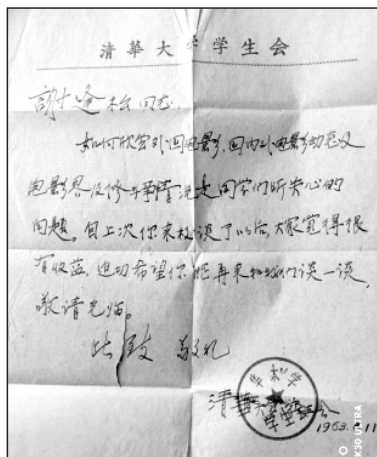 清華大学学生会
謝逢松同志：
如何欣赏外国电影、国内外电影动态及
电影界反修斗争情况是同学们所关心的
问题。自上次你来校谈了以后，大家觉得很
有收益，迫切希望你能再来和我们谈一谈，
敬请光临。
此致 敬礼
清華大学学生会
1963.
K30 ULTRA